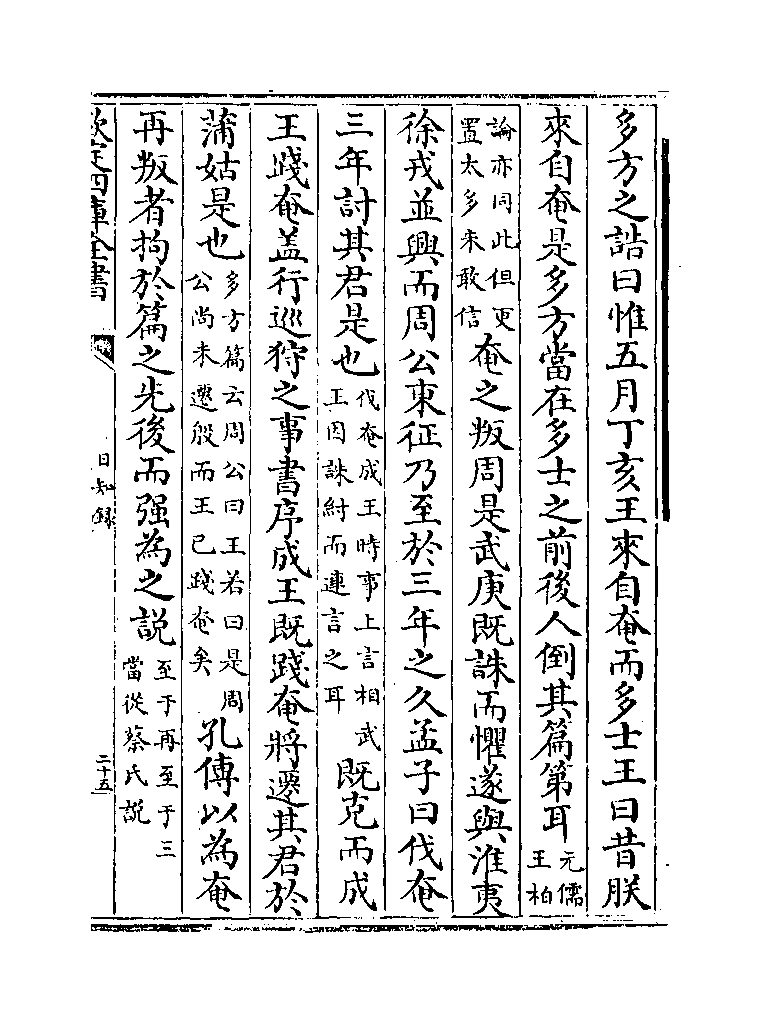 多方之誥曰惟五月丁亥王來自奄而多士王曰昔朕
來自奄是多方當在多士之前後人倒其篇第耳元儒王柏
論亦同此但更置太多未敢信奄之叛周是武庚既誅而懼遂與淮夷
徐戎並興而周公東征乃至於三年之久孟子曰伐奄
三年討其君是也伐奄成王時事上言相武王因誅紂而連言之耳既克而成
王踐奄盖行巡狩之事書序成王既踐奄將遷其君於
蒲姑是也多方篇云周公曰王若曰是周公尚未遷殷而王已踐奄矣孔傳以為奄
再叛者拘於篇之先後而强為之説至于再至于三當從蔡氏説
欽定四庫全書
日知錄
二十五